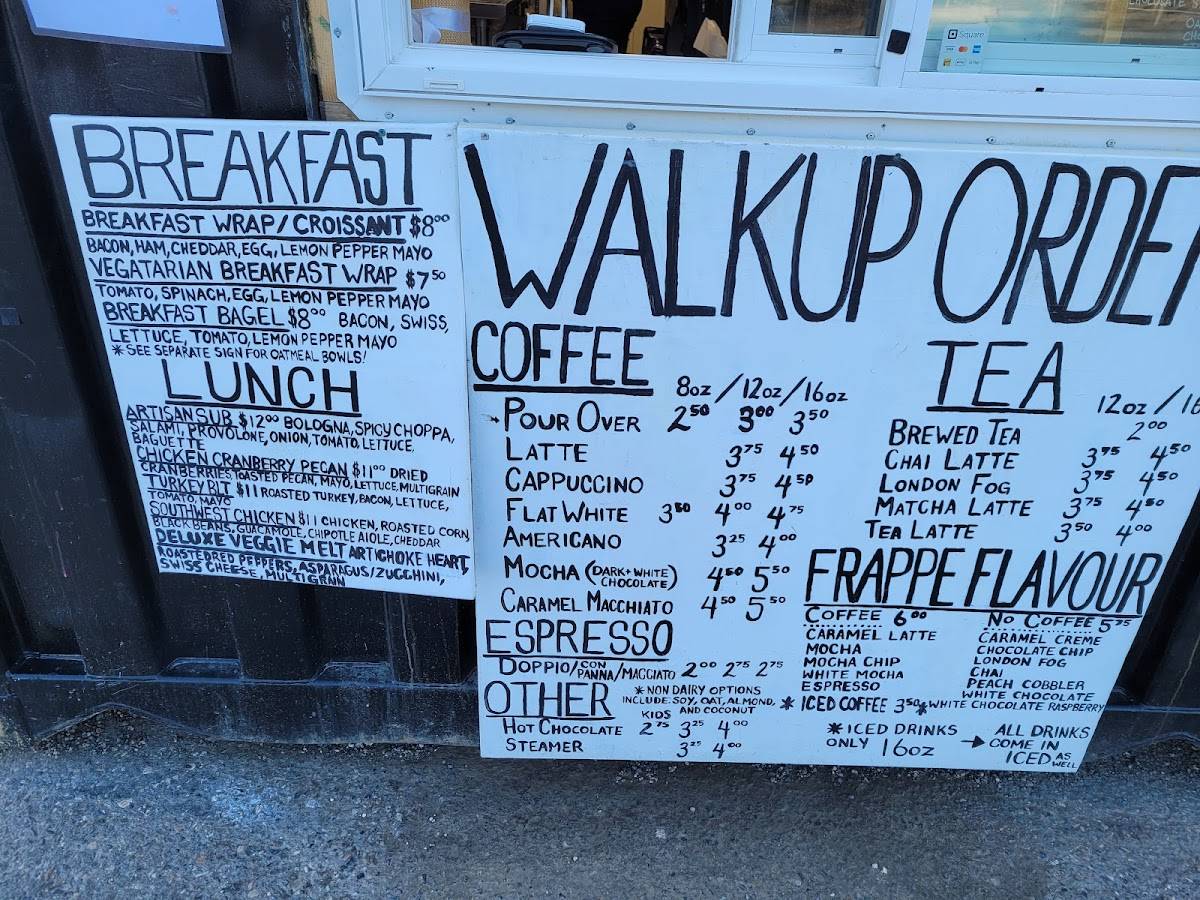 BREAKFAST
BREAKFAST WRAP/CROISSANT $8⁰⁰
BACON, HAM, CHEDDAR, EGG, LEMON PEPPER MAYO
VEGATARIAN BREAKFAST WRAP $7⁵⁰
TOMATO, SPINACH, EGG, LEMON PEPPER MAYO
BREAKFAST BAGEL $8⁰⁰ BACON, SWISS,
LETTUCE, TOMATO, LEMON PEPPER MAYO
*SEE SEPARATE SIGN FOR OATMEAL BOWLS!
LUNCH
ARTISAN SUB $12⁰⁰ BOLOGNA, SPICY CHOPPA,
SALAMI, PROVOLONE, ONION, TOMATO, LETTUCE,
BAGUETTE
CHICKEN CRANBERRY PECAN $11⁰⁰ DRIED
CRANBERRIES, TOASTED PECAN, MAYO, LETTUCE, MULTIGRAIN
TURKEY BLT $11 ROASTED TURKEY, BACON, LETTUCE,
TOMATO, MAYO
SOUTHWEST CHICKEN $11 CHICKEN, ROASTED CORN,
BLACK BEANS, GUACAMOLE, CHIPOTLE AIOLE, CHEDDAR
DELUXE VEGGIE MELT ARTICHOKE HEART,
ROASTED RED PEPPERS, ASPARAGUS/ZUCGHINI,
SWISS CHEESE, MULTIGRAIN
Square
WALKUP ORDER
COFFEE
8oz / 12oz / 16oz
POUR OVER 2⁵⁰ 3⁰⁰ 3⁵⁰
LATTE 3⁷⁵ 4⁵⁰
CAPPUCCINO 3⁷⁵ 4⁵⁰
FLAT WHITE 3⁵⁰ 4⁰⁰ 4⁷⁵
AMERICANO 3²⁵ 4⁰⁰
MOCHA (DARK + WHITE CHOCOLATE) 4⁵⁰ 5⁵⁰
CARAMEL MACCHIATO 4⁵⁰ 5⁵⁰
ESPRESSO
DOPPIO/CON PANNA/MACCIATO 2⁰⁰ 2⁷⁵ 2⁷⁵
OTHER
*NON DAIRY OPTIONS
INCLUDE: SOY, OAT, ALMOND,
AND COCONUT
KIDS
HOT CHOCOLATE 2⁷⁵ 3²⁵ 4⁰⁰
STEAMER 3²⁵ 4⁰⁰
TEA
12oz / 16
BREWED TEA 2⁰⁰
CHAI LATTE 3⁷⁵ 4⁵⁰
LONDON FOG 3⁷⁵ 4⁵⁰
MATCHA LATTE 3⁷⁵ 4⁵⁰
TEA LATTE 3⁵⁰ 4⁰⁰
FRAPPE FLAVOUR
COFFEE 6⁰⁰
CARAMEL LATTE
MOCHA
MOCHA CHIP
WHITE MOCHA
ESPRESSO
*ICED COFFEE 3⁵⁰*
NO COFFEE 5⁷⁵
CARAMEL CREME
CHOCOLATE CHIP
LONDON FOG
CHAI
PEACH COBBLER
WHITE CHOCOLATE
WHITE CHOCOLATE RASPBERRY
*ICED DRINKS
ONLY 16oz
→ ALL DRINKS
COME IN
ICED AS WELL